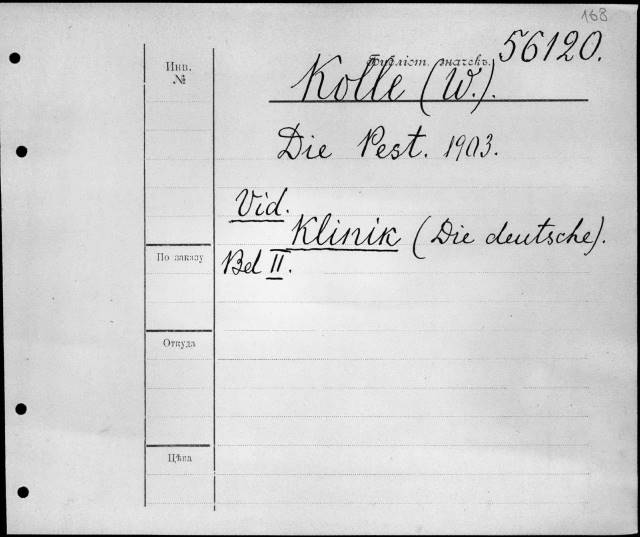 168
56120.
Библіот. значекъ.
Инв.
№
Kolle (W.).
Die Pest. 1903.
Vid.
Klinik (Die deutsche).
Bd II.
По заказу
Откуда
Цѣна